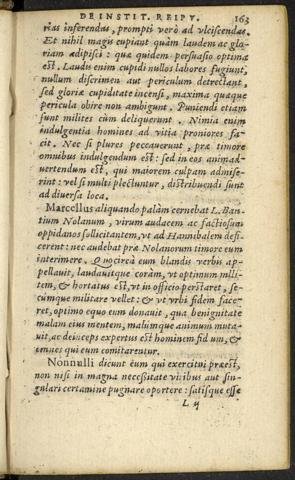 DE INSTIT. REIPV. 163
rias inferendas, prompti verò ad vlciscendas.
Et nihil magis cupiant quàm laudem ac glo-
riam adipisci : quæ quidem persuasio optima
est. Laudis enim cupidi nullos labores fugiunt,
nullum discrimen aut periculum detrectant,
sed gloriæ cupiditate incensi, maxima quæque
pericula obire non ambigunt. Puniendi etiam
sunt milites cùm deliquerunt. Nimia enim
indulgentia homines ad vitia proniores fa-
cit. Nec si plures peccauerunt, præ timore
omnibus indulgendum est : sed in eos animad-
uertendum est, qui maiorem culpam admise-
rint : vel si multi plectuntur, distribuendi sunt
ad diuersa loca.
Marcellus aliquando palàm cernebat L. Ban-
tium Nolanum, virum audacem ac factiosum
oppidanos sollicitantem, vt ad Hannibalem defi-
cerent : nec audebat præ Nolanorum timore eum
interimere. Quocircà eum blandis verbis ap-
pellauit, laudauitque coràm, vt optimum mili-
tem, & hortatus est, vt in officio perstaret, se-
cumque militare vellet : & vt vrbi fidem face-
ret, optimo equo eum donauit, qua benignitate
malam eius mentem, malúmque animum muta-
uit, ac deinceps expertus est hominem fidum, &
omnes qui eum comitarentur.
Nonnulli dicunt eum qui exercitui præest,
non nisi in magna necessitate viribus aut sin-
gulari certamine pugnare oportere : satisque esse
L ij